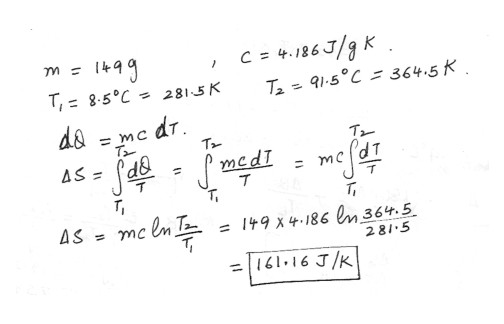 m = 149g , C = 4.186 J/g K .
T₁ = 8.5°C = 281.5K T₂ = 91.5°C = 364.5K .
dQ = mc dT.
ΔS = ∫_{T₁}^{T₂} dQ/T = ∫_{T₁}^{T₂} mcdT/T = mc ∫_{T₁}^{T₂} dT/T
ΔS = mc ln T₂/T₁ = 149 × 4.186 ln 364.5/281.5
= 161.16 J/K